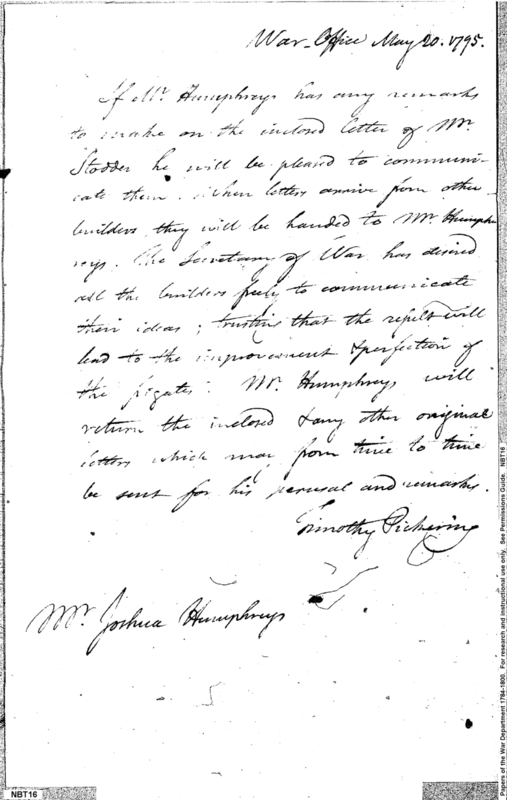 War-Office May 20. 1795.
If Mr. Humphreys has any remarks
to make on the inclosed letter of Mr.
Stodder he will be pleased to communi-
cate them. When letters arrive from other
builders they will be handed to Mr. Humph
reys. The Secretary of War has desired
all the builders freely to communicate
their ideas; trusting that the result will
lead to the improvement & perfection of
the frigates. Mr. Humphreys will
return the inclosed & any other original
letters which may from time to time
be sent for his perusal and remarks.
Timothy Pickering
Mr. Joshua Humphreys
NBT16
Papers of the War Department 1784-1800. For research and instructional use only. See Permissions Guide. NBT16